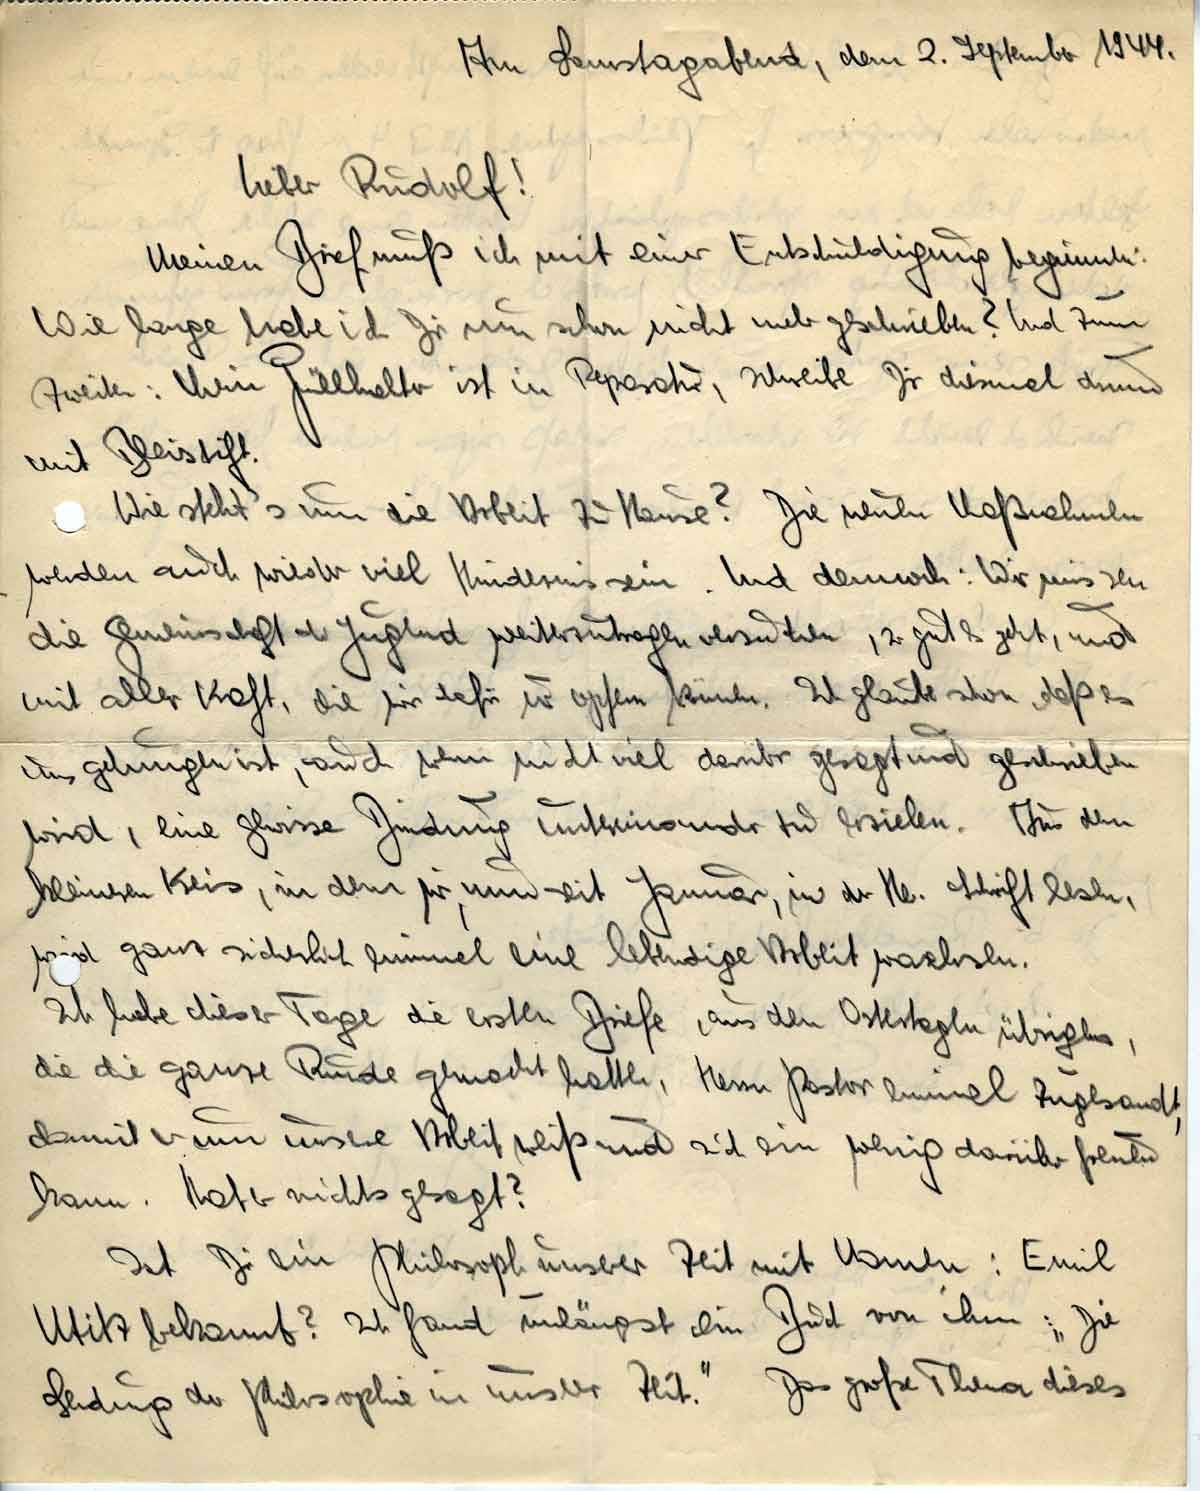 Am Samstagabend, dem 2. September 1944.
Lieber Rudolf!
Meinen Brief muß ich mit einer Entschuldigung beginnen:
Wie lange habe ich Dir nun schon nicht mehr geschrieben? Und zum
zweiten: Mein Füllhalter ist in Reparatur, schreibe Dir diesmal darum
mit Bleistift.
Wie steht's um die Arbeit zu Hause? Die neuen Maßnahmen
werden auch wieder viel Hindernis sein. Und dennoch: Wir müssen
die Gemeinschaft der Jugend weiterzutragen versuchen, so gut es geht, und
mit aller Kraft, die wir dafür zu opfern können. Ich glaube schon, daß es
uns gelungen ist, auch wenn nicht viel darüber gesagt und geschrieben
wird, eine gewisse Bindung untereinander zu erzielen. Aus dem
kleinen Kreis, in dem wir, nun seit Januar, in der Hl. Schrift lesen,
wird ganz sicherlich einmal eine lebendige Arbeit wachsen.
Ich habe dieser Tage die ersten Briefe, aus den Ostertagen übrigens,
die die ganze Runde gemacht hatten, Herrn Pastor einmal zugesandt,
damit er um unsere Arbeit weiß und sich ein wenig darüber freuen
kann. Hat er nichts gesagt?
Ist Dir ein Philosoph unserer Zeit mit Namen: Emil
Utitz bekannt? Ich fand unlängst ein Buch von ihm: „Die
Sendung der Philosophie in unserer Zeit." Das große Thema dieses